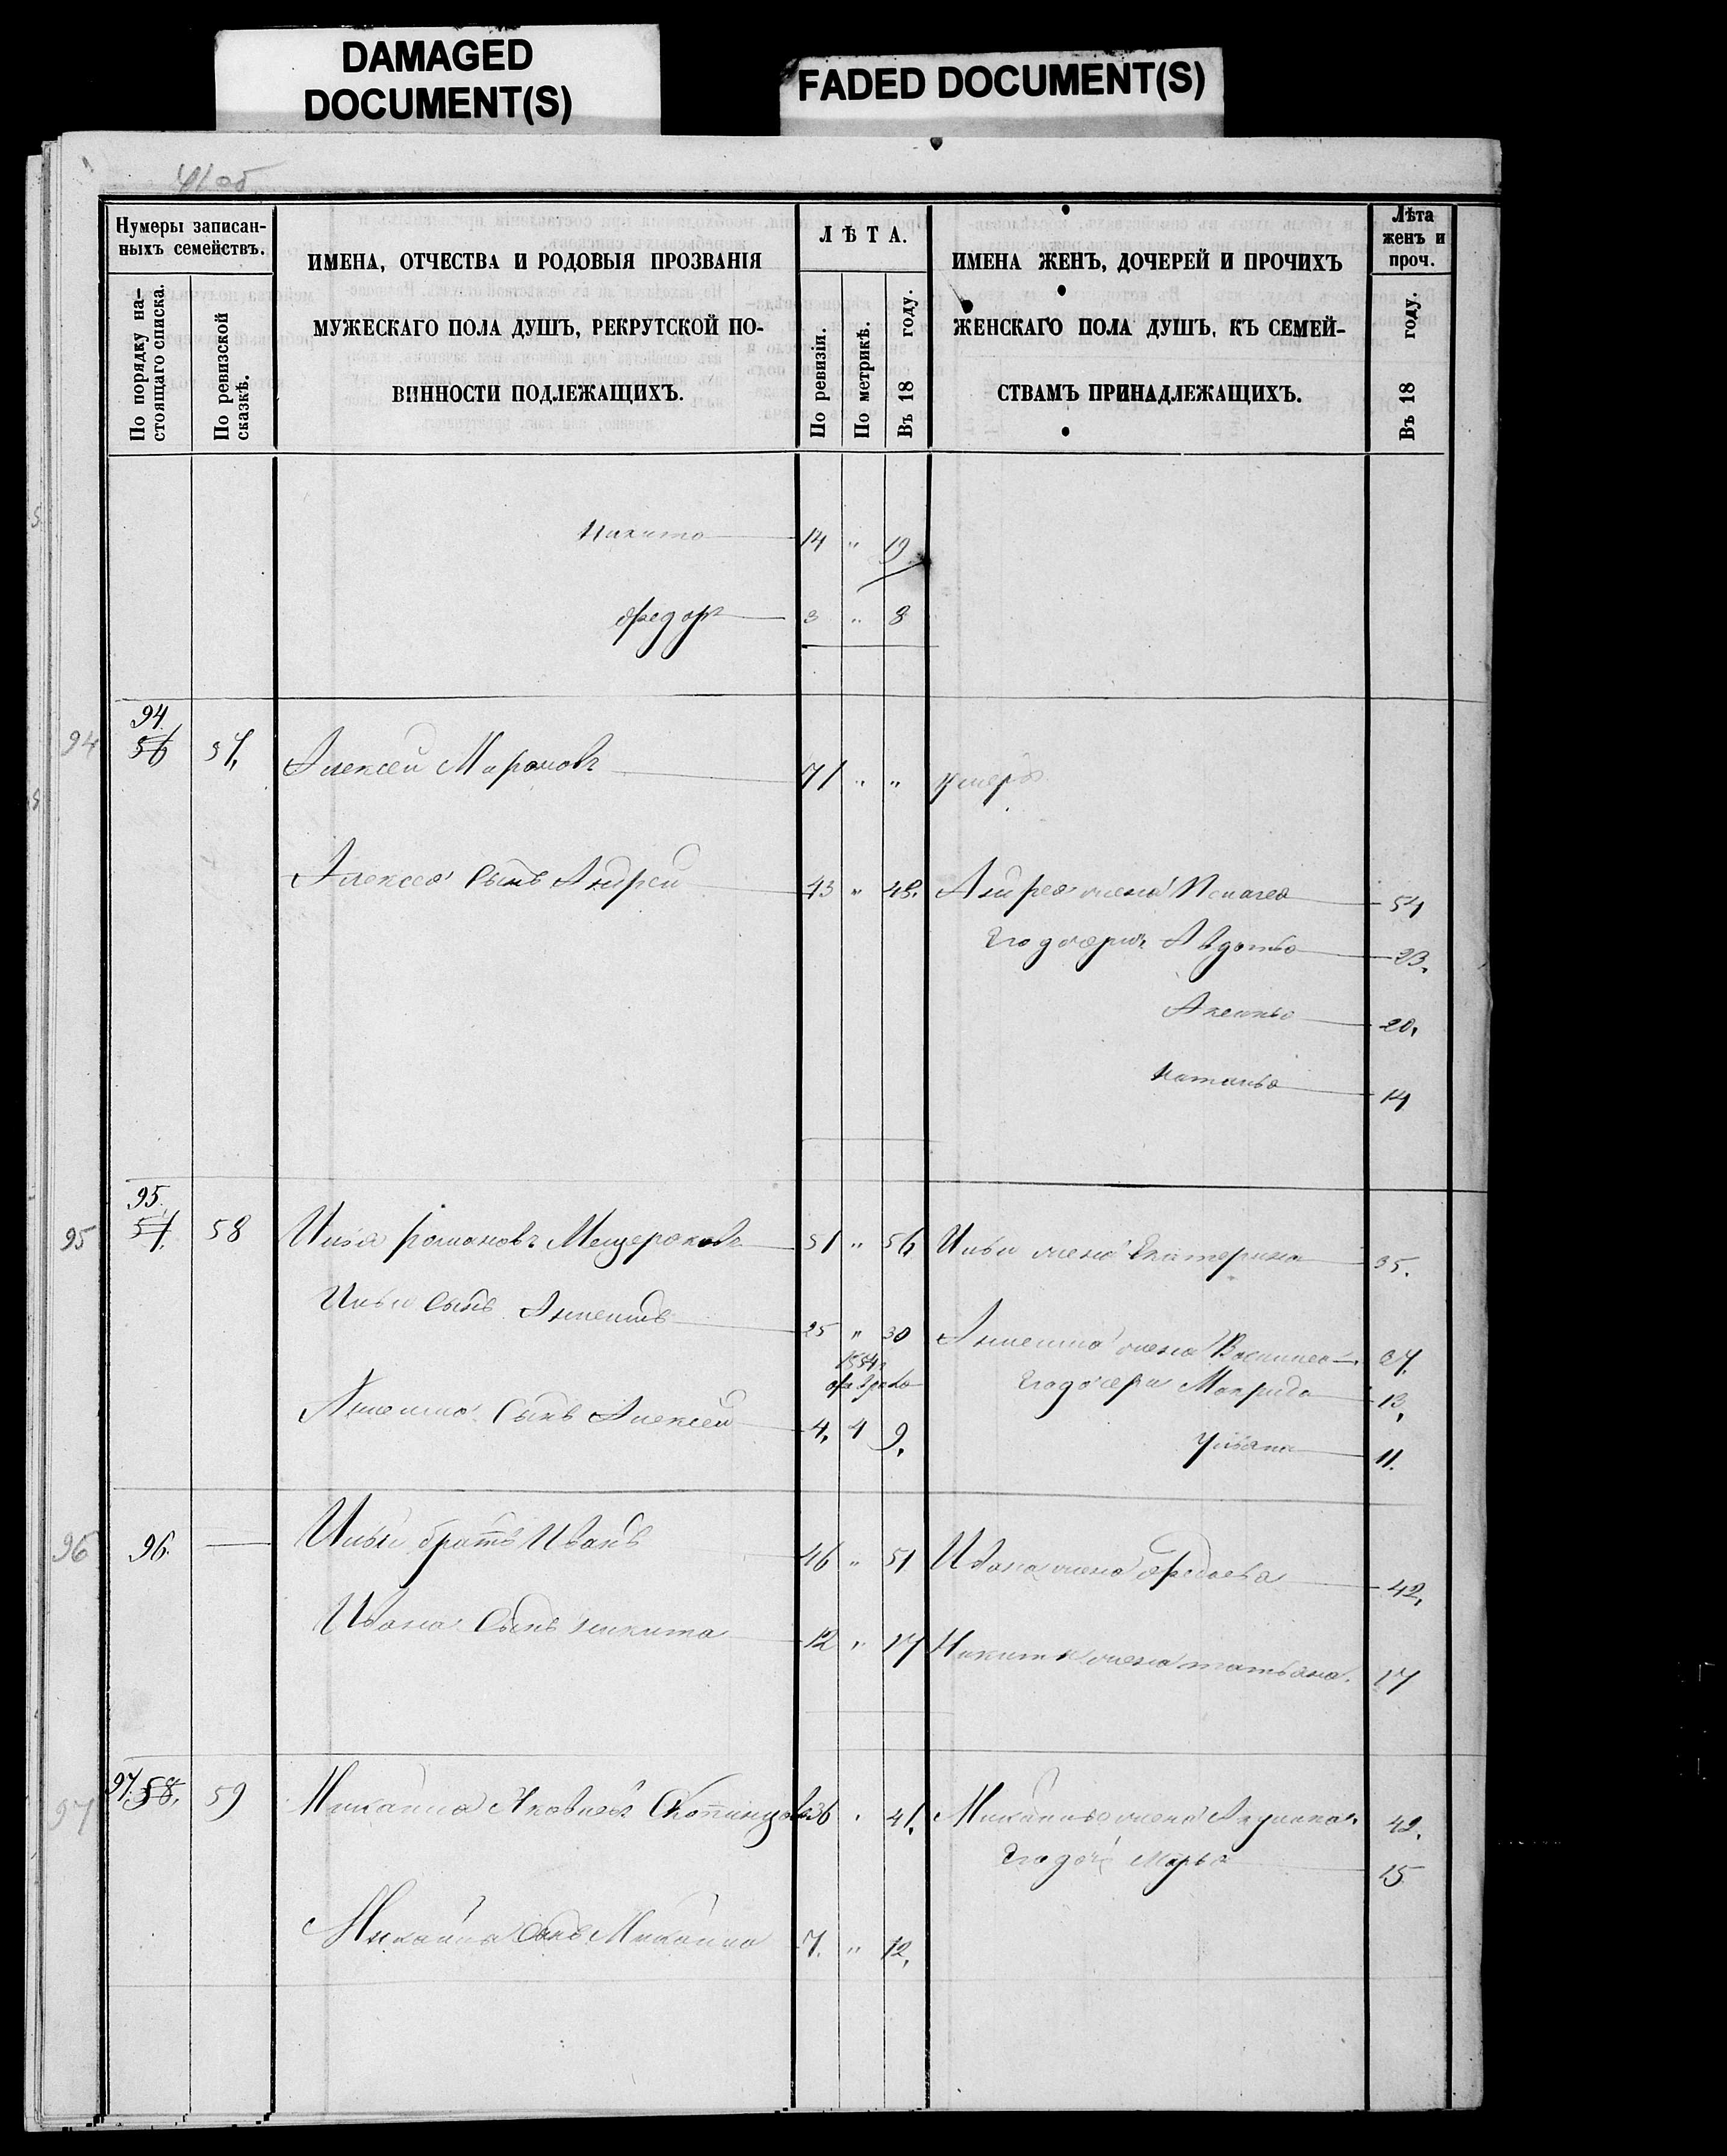 DAMAGED
DOCUMENT(S)
FADED DOCUMENT(S)
41 об
Нумеры записан-
ныхъ семействъ.
По порядку на-
стоящаго списка.
По ревизской
сказкѣ.
ИМЕНА, ОТЧЕСТВА И РОДОВЫЯ ПРОЗВАНІЯ
МУЖЕСКАГО ПОЛА ДУШЪ, РЕКРУТСКОЙ ПО-
ВИННОСТИ ПОДЛЕЖАЩИХЪ.
ЛѢТА.
По ревизіи.
По метрикѣ.
Въ 18 году.
ИМЕНА ЖЕНЪ, ДОЧЕРЕЙ И ПРОЧИХЪ
ЖЕНСКАГО ПОЛА ДУШЪ, КЪ СЕМЕЙ-
СТВАМЪ ПРИНАДЛЕЖАЩИХЪ.
Лѣта
женъ и
проч.
Въ 18 году.
Никита 14 " 19
Федоръ 3 " 8
94 94. 56 57, Алексей Мароновъ 71 " " умеръ
Алексея Сынъ Андрей 43 " 48, Андрея жена Пелагея 54
Его дочери Авдотья 23,
Аксинья 20,
Наталья 14
95 95. 57. 58 Илья Романовъ Мещеряковъ 51 " 56 Ильи жена Екатерина 35.
Ильи Сынъ 25 " 30 жена Василиса 27,
1854 г. февраля
Его дочери Макрида 13,
Сынъ Алексей 4, 4 9,
Ульяна 11.
96 96. — Ильи братъ Иванъ 46 " 51 Ивана жена 42,
Ивана Сынъ Никита 12 " 17 Никиты жена Татьяна. 17
97 97. 58. 59 Михаила Яковлевъ Скопинцовъ 36 " 41, Михаилы жена Акулина 42.
Его дочь Марья 15
Михаила Сынъ Михаила 7. " 12,